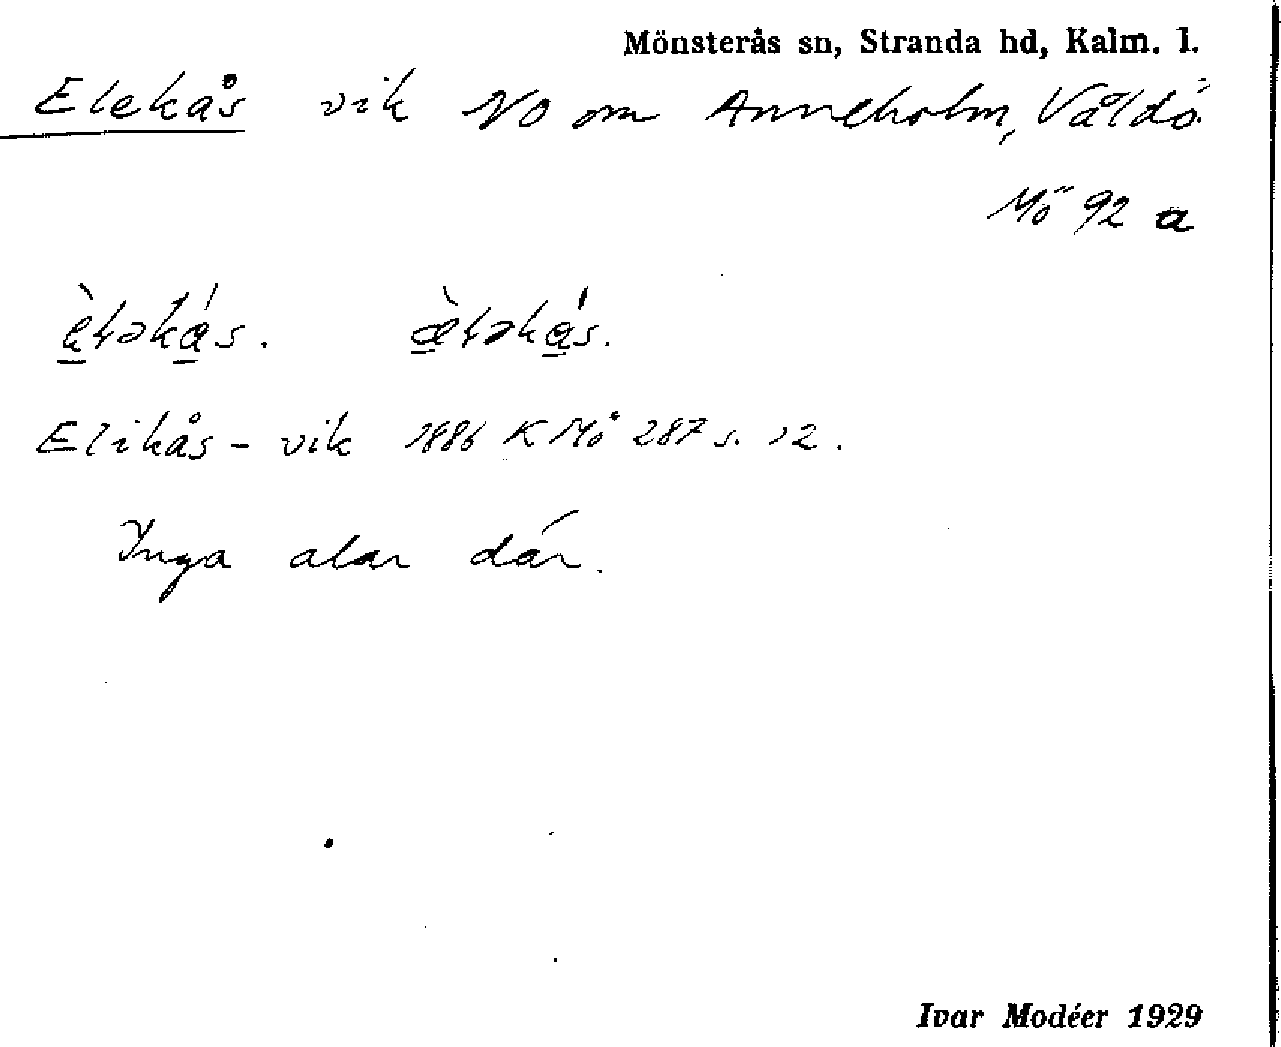 Mönsterås sn, Stranda hd, Kalm. l.
Elekås vik NO om Anneholm, Våldö
Mö 92 a
Elikås - vik 1886 K Mö 287 s. 12.
Inga alar där.
Ivar Modéer 1929